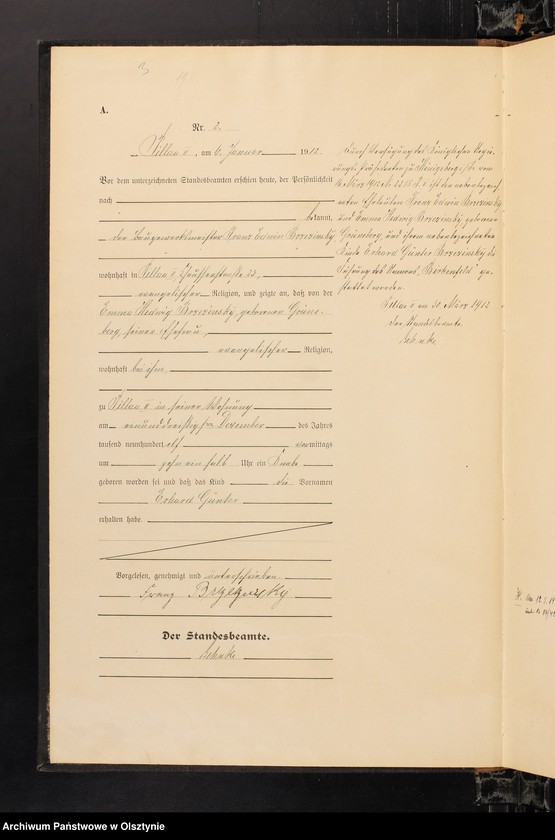 A.
Nr. 2.
Pillau II, am 6. Januar 1912.
Vor dem unterzeichneten Standesbeamten erschien heute, der Persönlichkeit
nach
bekannt,
der Baugewerksmeister Franz Edwin Brzezinsky
wohnhaft in Pillau II, Chausseestraße 22,
evangelischer Religion, und zeigte an, daß von der
Emma Hedwig Brzezinsky geborenen Grüne-
berg, seiner Ehefrau,
evangelischer Religion,
wohnhaft bei ihm,
zu Pillau II in seiner Wohnung
am einunddreißigsten Dezember des Jahres
tausend neunhundert elf vormittags
um zehn ein halb Uhr ein Knabe
geboren worden sei und daß das Kind die Vornamen
Erhard Günter
erhalten habe.
Vorgelesen, genehmigt und unterschrieben
Franz Brzezinsky
Der Standesbeamte.
Schuke
Durch Verfügung des Königlichen Regie-
rungs-Präsidenten zu Königsberg i/Pr. vom
März 1912 ist den nebenbezeich-
neten Eheleuten Franz Edwin Brzezinsky
und Emma Hedwig Brzezinsky geborenen
Grüneberg, und ihrem nebenbezeichneten
Kinde Erhard Günter Brzezinsky die
Führung des Namens "Birkenfeld" ge-
stattet worden.
Pillau II am 30. März 1912
Der Standesbeamte
Schuke
Archiwum Państwowe w Olsztynie